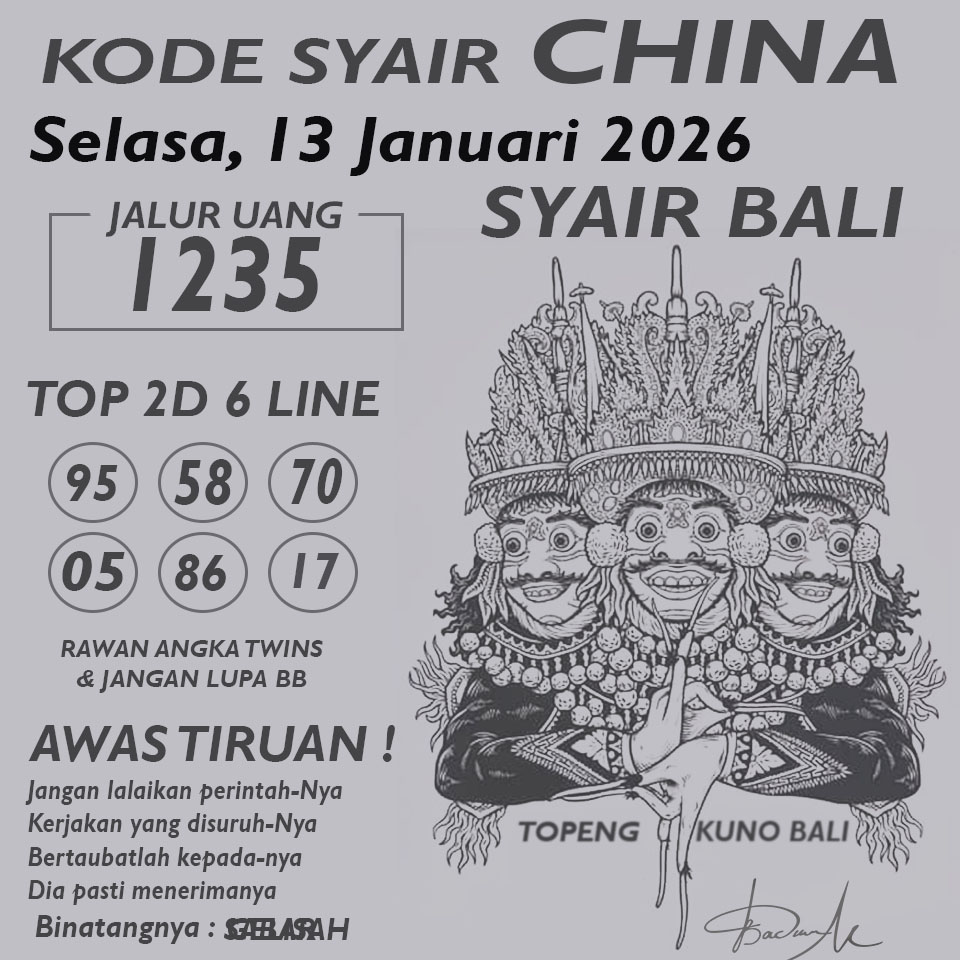 KODE SYAIR CHINA
Selasa, 13 Januari 2026
SYAIR BALI
JALUR UANG
1235
TOP 2D 6 LINE
95 58 70
05 86 17
RAWAN ANGKA TWINS
& JANGAN LUPA BB
AWAS TIRUAN !
Jangan lalaikan perintah-Nya
Kerjakan yang disuruh-Nya
Bertaubatlah kepada-nya
Dia pasti menerimanya
Binatangnya :
TOPENG KUNO BALI